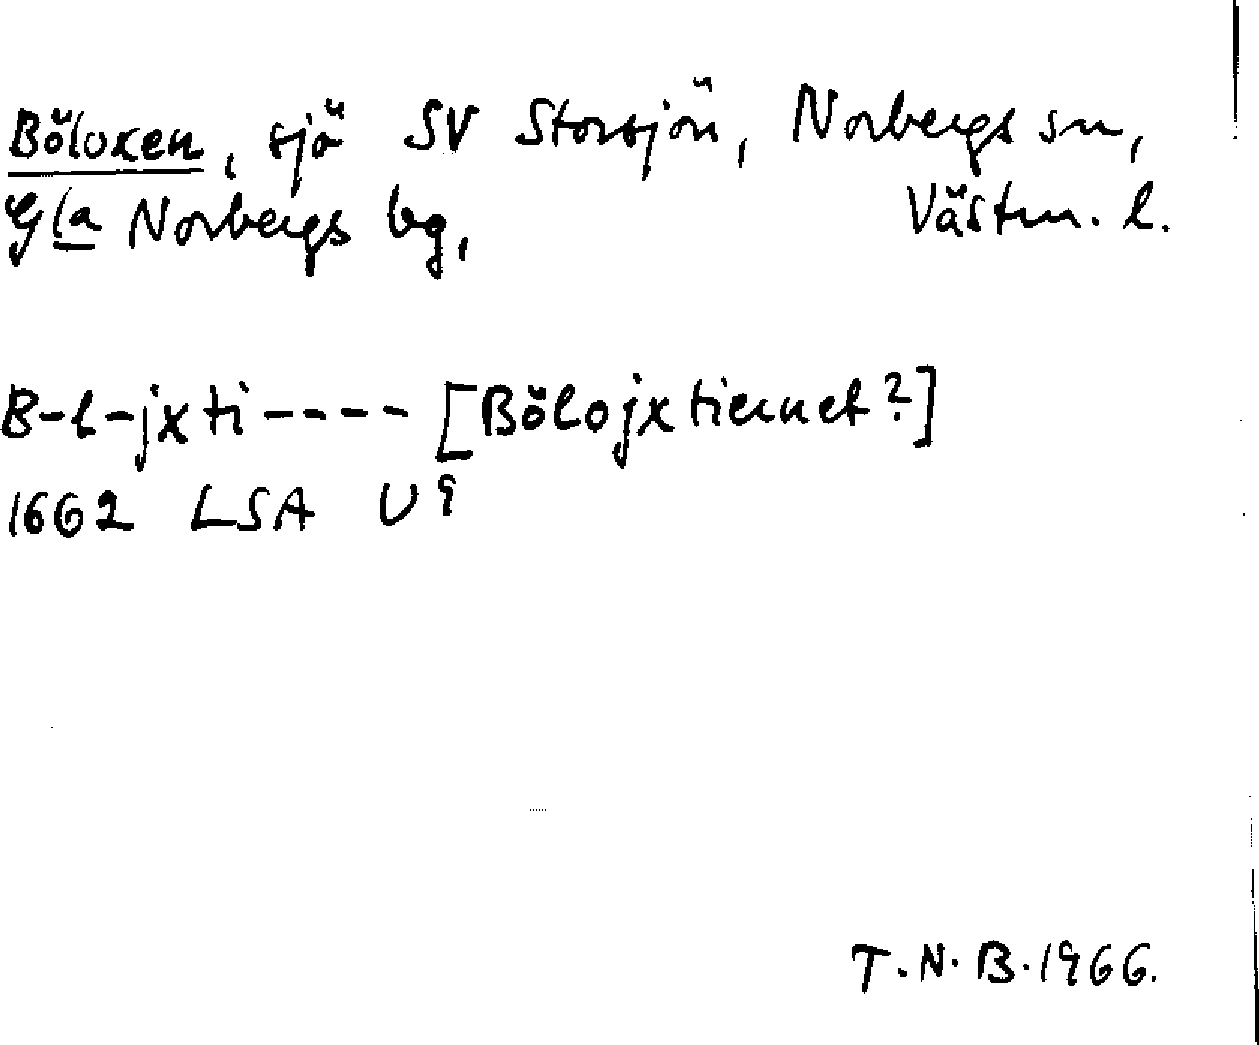 Böloxen, sjö SV Storsjön, Norbergs sn,
Gla Norbergs bg, Västm. l.
B-l-jxti---- [Bölojxtiernet?]
1662 LSA U 9
T.N.B. 1966.